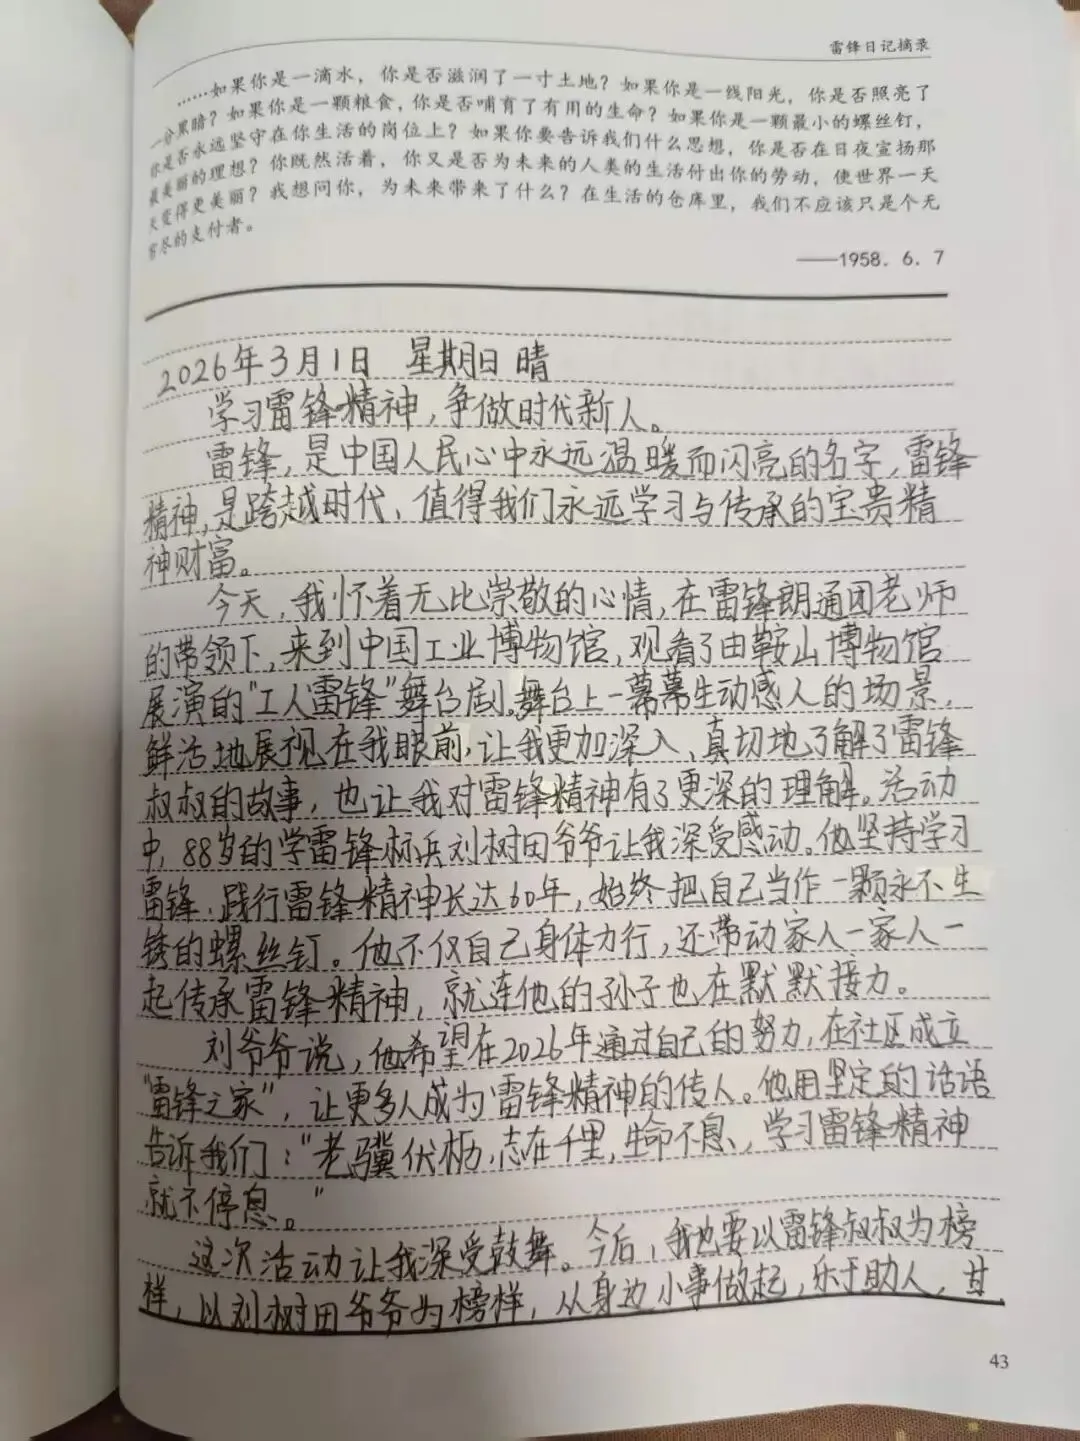 雷锋日记摘录
……如果你是一滴水，你是否滋润了一寸土地？如果你是一线阳光，你是否照亮了
一分黑暗？如果你是一颗粮食，你是否哺育了有用的生命？如果你是一颗最小的螺丝钉，
你是否永远坚守在你生活的岗位上？如果你要告诉我们什么思想，你是否在日夜宣扬那
最美丽的理想？你既然活着，你又是否为未来的人类的生活付出你的劳动，使世界一天
天变得更美丽？我想问你，为未来带来了什么？在生活的仓库里，我们不应该只是个无
穷尽的支付者。
——1958．6．7
2026年3月1日 星期日 晴
学习雷锋精神，争做时代新人。
雷锋，是中国人民心中永远温暖而闪亮的名字，雷锋
精神，是跨越时代、值得我们永远学习与传承的宝贵精
神财富。
今天，我怀着无比崇敬的心情，在雷锋朗通团老师
的带领下，来到中国工业博物馆，观看了由鞍山博物馆
展演的"工人雷锋"舞台剧。舞台上一幕幕生动感人的场景，
鲜活地展现在我眼前，让我更加深入、真切地了解了雷锋
叔叔的故事，也让我对雷锋精神有了更深的理解。活动
中，88岁的学雷锋标兵刘树田爷爷让我深受感动。他坚持学习
雷锋、践行雷锋精神长达60年，始终把自己当作一颗永不生
锈的螺丝钉。他不仅自己身体力行，还带动家人一家人一
起传承雷锋精神，就连他的孙子也在默默接力。
刘爷爷说，他希望在2026年通过自己的努力，在社区成立
"雷锋之家"，让更多人成为雷锋精神的传人。他用坚定的话语
告诉我们："老骥伏枥，志在千里，生命不息、学习雷锋精神
就不停息。"
这次活动让我深受鼓舞。今后，我也要以雷锋叔叔为榜
样，以刘树田爷爷为榜样，从身边小事做起，乐于助人，甘
43